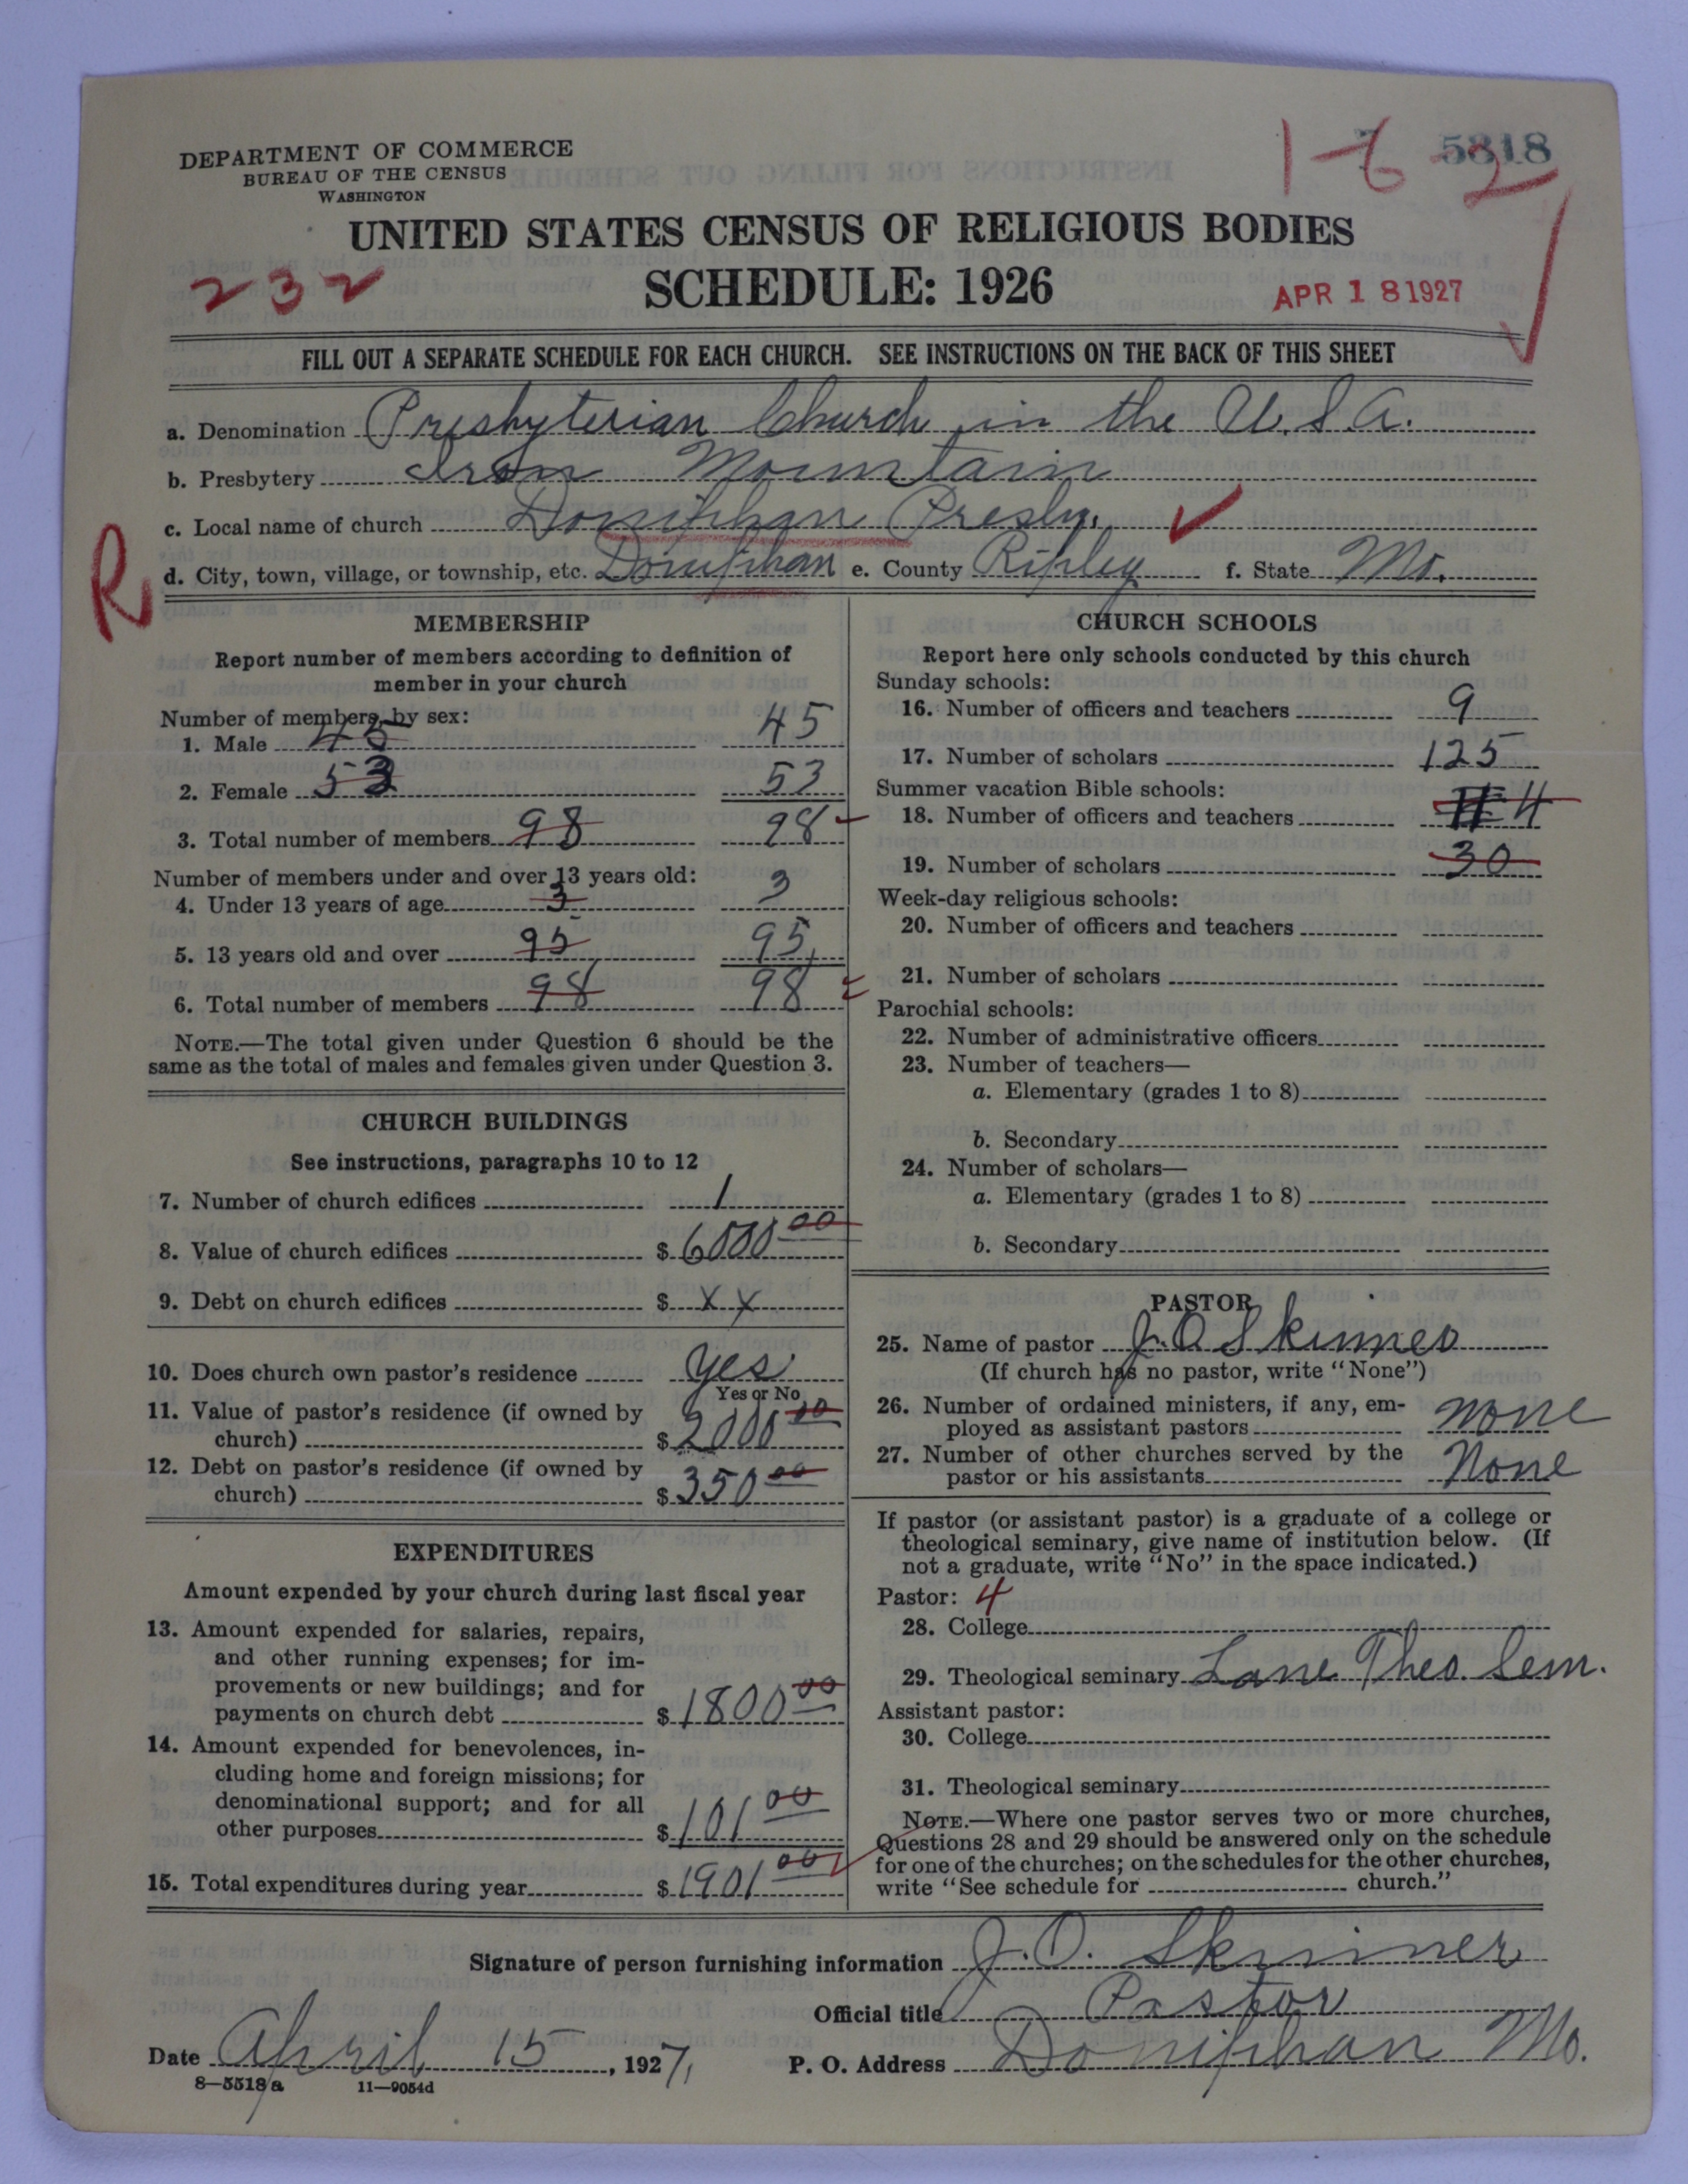 DEPARTMENT OF COMMERCE
BUREAU OF THE CENSUS
WASHINGTON
1-6 2
5818
UNITED STATES CENSUS OF RELIGIOUS BODIES
232
SCHEDULE: 1926
APR 18 1927
FILL OUT A SEPARATE SCHEDULE FOR EACH CHURCH. SEE INSTRUCTIONS ON THE BACK OF THIS SHEET
a. Denomination Presbyterian Church in the U.S.A.
b. Presbytery Iron Mountain
c. Local name of church Doniphan Presby.
R
d. City, town, village, or township, etc. Doniphan e. County Ripley f. State Mo.
MEMBERSHIP
Report number of members according to definition of
member in your church
Number of members, by sex:
1. Male 45 45
2. Female 53 53
3. Total number of members 98 98
Number of members under and over 13 years old:
4. Under 13 years of age 3 3
5. 13 years old and over 95 95
6. Total number of members 98 98
NOTE.—The total given under Question 6 should be the
same as the total of males and females given under Question 3.
CHURCH BUILDINGS
See instructions, paragraphs 10 to 12
7. Number of church edifices 1
8. Value of church edifices $ 6000 00
9. Debt on church edifices $ x x
10. Does church own pastor's residence yes
Yes or No
11. Value of pastor's residence (if owned by
church) $ 2000 00
12. Debt on pastor's residence (if owned by
church) $ 350 00
EXPENDITURES
Amount expended by your church during last fiscal year
13. Amount expended for salaries, repairs,
and other running expenses; for im-
provements or new buildings; and for
payments on church debt $ 1800 00
14. Amount expended for benevolences, in-
cluding home and foreign missions; for
denominational support; and for all
other purposes $ 101 00
15. Total expenditures during year $ 1901 00
CHURCH SCHOOLS
Report here only schools conducted by this church
Sunday schools:
16. Number of officers and teachers 9
17. Number of scholars 125
Summer vacation Bible schools:
18. Number of officers and teachers 4
19. Number of scholars 30
Week-day religious schools:
20. Number of officers and teachers
21. Number of scholars
Parochial schools:
22. Number of administrative officers
23. Number of teachers—
a. Elementary (grades 1 to 8)
b. Secondary
24. Number of scholars—
a. Elementary (grades 1 to 8)
b. Secondary
PASTOR
25. Name of pastor J. O. Skinner
(If church has no pastor, write "None")
26. Number of ordained ministers, if any, em-
ployed as assistant pastors none
27. Number of other churches served by the
pastor or his assistants None
If pastor (or assistant pastor) is a graduate of a college or
theological seminary, give name of institution below. (If
not a graduate, write "No" in the space indicated.)
Pastor: 4
28. College
29. Theological seminary Lane Theo. Sem.
Assistant pastor:
30. College
31. Theological seminary
NOTE.—Where one pastor serves two or more churches,
Questions 28 and 29 should be answered only on the schedule
for one of the churches; on the schedules for the other churches,
write "See schedule for church."
Signature of person furnishing information J. O. Skinner
Official title Pastor
Date April 15, 1927, P. O. Address Doniphan Mo.
8—5518 a 11—9054d